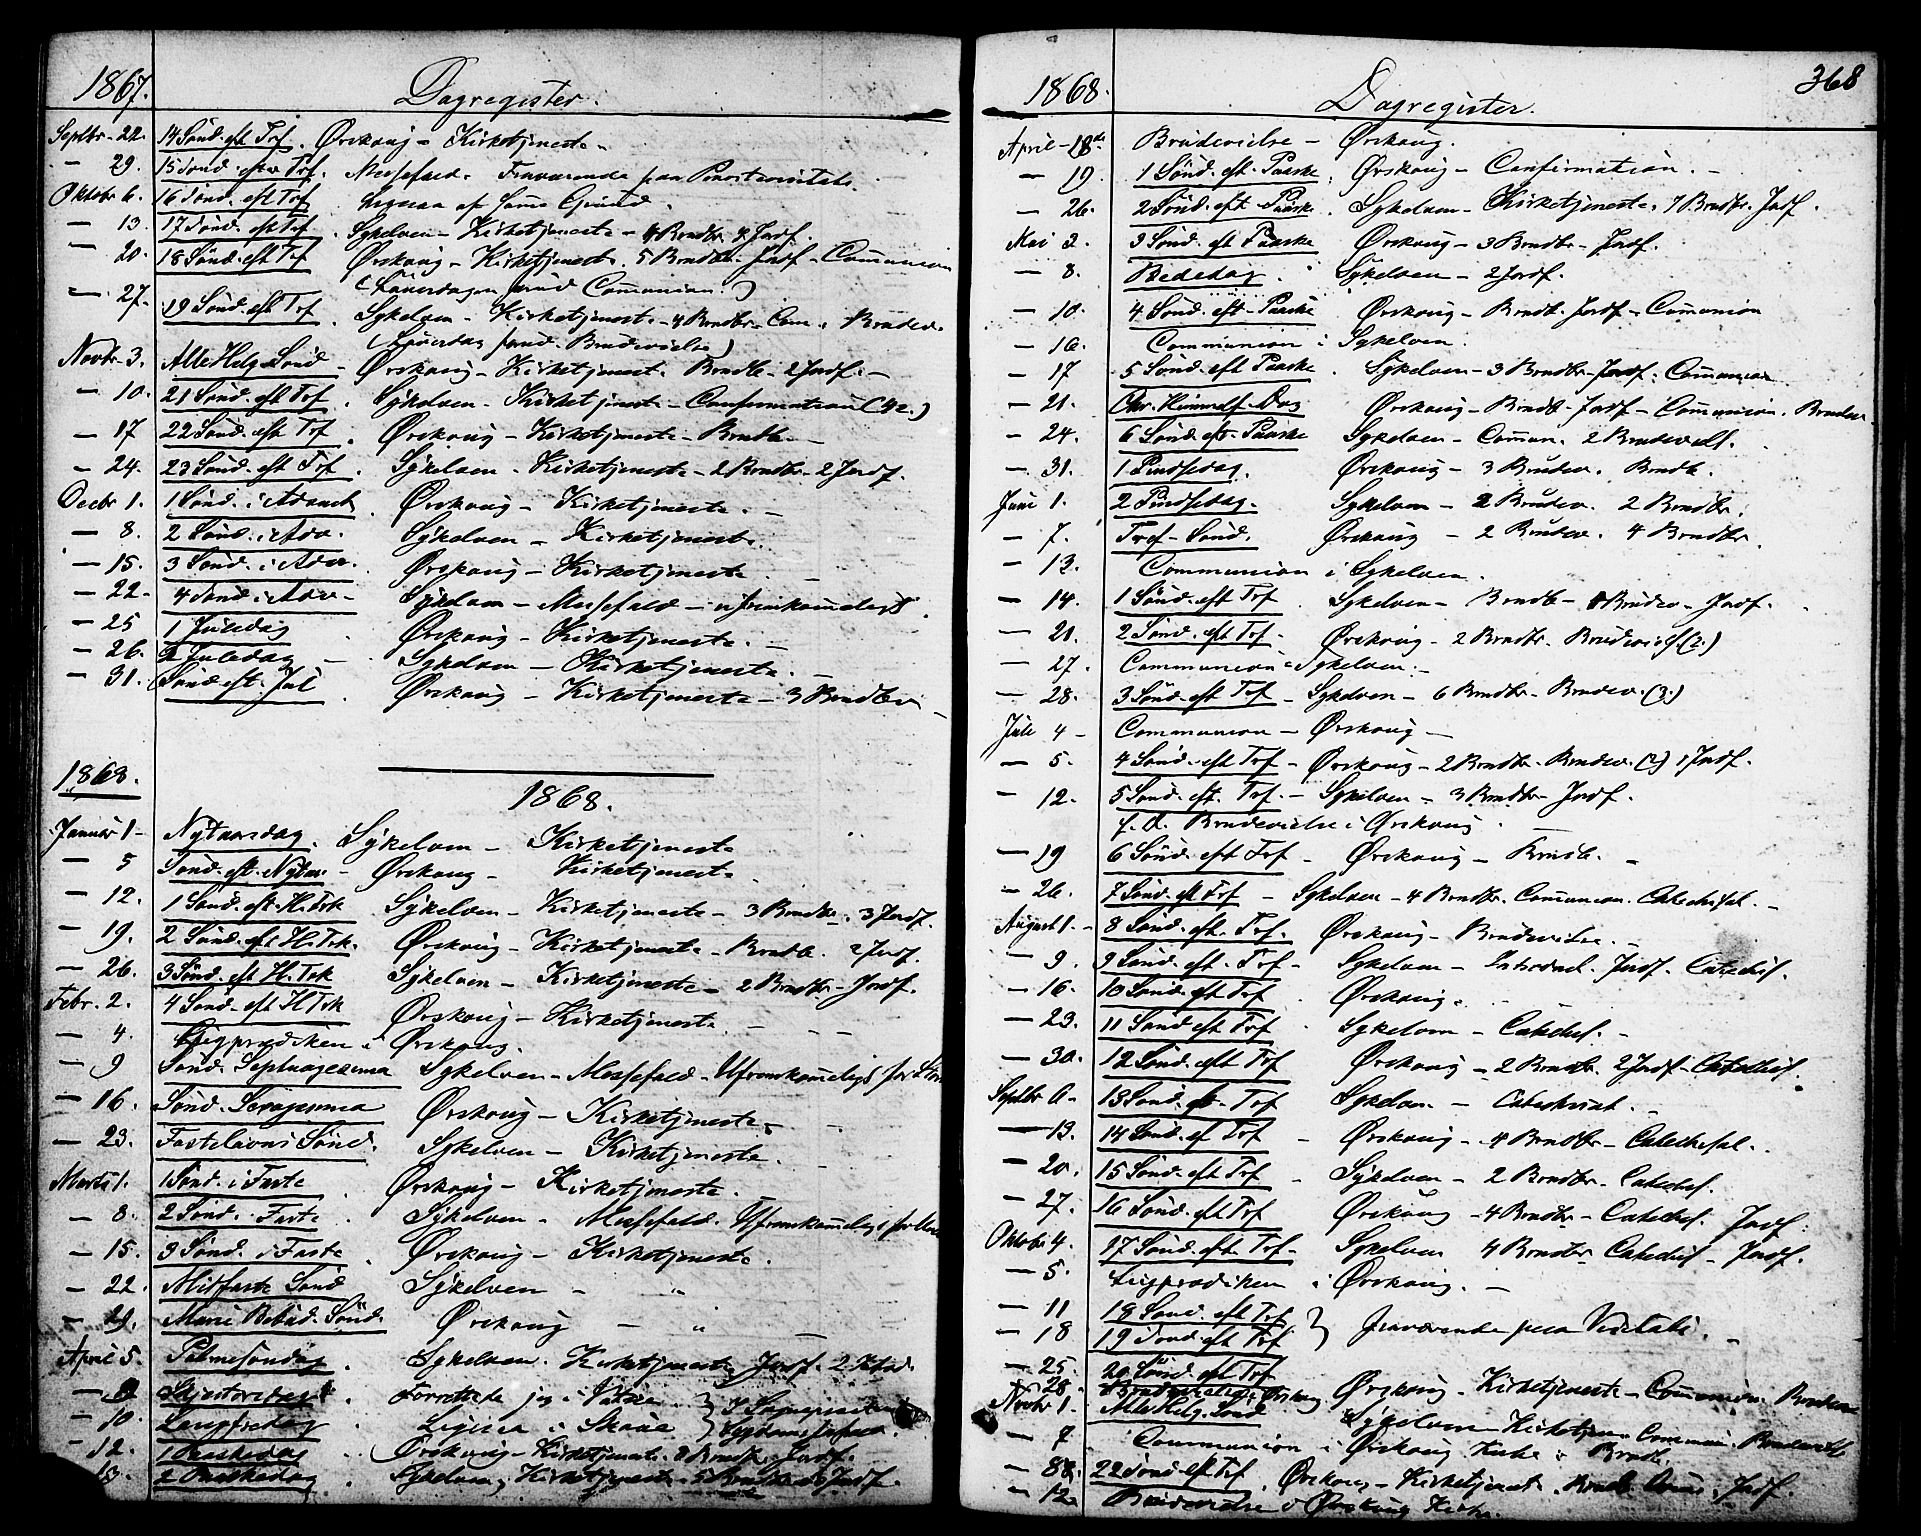 1867.
Dagregister.
Septbr. 22. 14 Sønd. eft Trf. Ørskoug - Kirketjeneste.
— 29. 15 Sønd. efter Trf. Messefald. Fraværende paa
Oktobr 6. 16 Sønd. eft Trf Ligesaa af samme Grund.
— 13. 17 Sønd. eft Trf. Sykelven - Kirketjeneste - 4 Brndbr. 4 Jordf.
— 20. 18 Sønd. eft Trf Ørskoug - Kirketjeneste. 5 Brndbr. Jordf - Communion
(Løverdagen forud Communion.)
— 27. 19 Sønd. eft Trf. Sykelven - Kirketjeneste - 4 Brndbr - Com. Brudev.
(Løverdag forud. Brudevielse)
Novbr 3. Alle Helg. Sønd - Ørskoug - Kirketjenest. Brndb - 2 Jordf. -
— 10. 21 Sønd. eft Trf. Sykelven - Kirketjeneste - Confirmation (42.)
— 17 22 Sønd. eft Trf. Ørskoug - Kirketjeneste - Brndb. -
— 24. 23 Sønd. eft Trf. Sykelven - Kirketjeneste - 2 Brndbr - 2 Jordf.
Decbr 1. 1 Sønd. i Advent. Ørskoug - Kirketjeneste. -
— 8. 2 Sønd. i Adv. Sykelven - Kirketjeneste.
— 15. 3 Sønd. i Adv. Ørskoug - Kirketjeneste.
— 22. 4 Sønd. i Adv - Sykelven - Messefald - ufremkommeligt.
— 25 1 Juledag Ørskoug - Kirketjeneste. -
— 26. 2 Juledag - Sykelven - Kirketjeneste. -
— 31. Sønd eft. Jul. Ørskoug - Kirketjeneste - 3 Brndbr -
1868.
1868.
Januar 1 - Nytaarsdag. Sykelven - Kirketjeneste
— 5 Sønd. eft. Nytaar - Ørskoug - Kirketjeneste.
— 12. 1 Sønd. eft. H. Trk Sykelven - Kirketjeneste - 3 Brndbr. 3 Jordf.
— 19. 2 Sønd. eft H. Trk. Ørskoug - Kirketjeneste - Brndb. 2 Jordf.
— 26. 3 Sønd. eft H. Trk Sykelven - Kirketjeneste - 2 Brndbr - Jordf.
Febr. 2. 4 Sønd. eft H Trk Ørskoug - Kirketjeneste. -
— 4. Ligprædiken i Ørskoug.
— 9 Sønd. Septuagesima Sykelven - Messefald - Ufremkommeligt for
— 16. Sønd. Sexagesima Ørskoug - Kirketjeneste.
— 23. Fastelavns Sønd. Sykelven - Kirketjeneste.
Marts 1. 1 Sønd. i Faste Ørskoug - Kirketjeneste.
— 8. 2 Sønd. i Faste. Sykelven - Messefald. Ufremkommeligt for
— 15. 3 Sønd. i Faste. Ørskoug - Kirketjeneste.
— 22. Midfaste Sønd Sykelven - "
— 29. Marie Bebud. Sønd. Ørskoug - "
April 5. Palmesøndag. Sykelven. Kirketjeneste. Jordf. 2
— 9 Skjertorsdag. Forrettede jeg i
— 10. Langfredag Ligesaa i
— 12. 1 Paaskedag. Ørskoug - Kirketjeneste. Brndbr. Jordf.
— 13. 2 Paaskedag. Sykelven, Kirketjeneste. 5 Brndbr Jordf.
1868.
Dagregister.
368
April - 18de Brudevielse - Ørskoug.
— 19. 1 Sønd. eft. Paaske. Ørskoug - Confirmation. -
— 26. 2 Sønd. eft Paaske. Sykelven - Kirketjeneste. 7 Brndbr. Jordf.
Mai 3. 3 Sønd. eft Paaske Ørskoug - 3 Brndbr - Jordf.
— 8. Bededag. Sykelven - 2 Jordf.
— 10. 4 Sønd. eft - Paaske Ørskoug - Brndb. Jordf - Communion
— 16. Communion i Sykelven.
— 17 5 Sønd. eft Paaske. Sykelven - 3 Brndbr - Jordf. Communion
— 21. Chr. Himmelf. Dag Ørskoug - Brndb. Jordf - Communion. Brudev.
— 24. 6 Sønd. eft. Paaske Sykelven - Common. 2 Brudevielf.
— 31. 1 Pindsedag. Ørskoug - 3 Brudev. Brndb.
Juni 1. 2 Pindsedag. Sykelven - 2 Brudev. 2 Brndbr.
— 7. Tref - Sønd. Ørskoug - 2 Brudev. 4 Brndbr.
— 13. Communion i Sykelven.
— 14. 1 Sønd. eft Trf. Sykelven - Brndb - 8 Brudev - Jordf.
— 21. 2 Sønd. eft Trf. Ørskoug - 2 Brndbr. Brudeviels (2.)
— 27. Communion i Sykelven. -
— 28. 3 Sønd. eft Trf - Sykelven - 6 Brndbr - Brudev. (3.)
Juli 4 - Communion - Ørskoug -
— 5. 4 Sønd. eft Trf - Ørskoug - 2 Brndbr - Brudev. (2) 1 Jordf.
— 12. 5 Sønd. eft. Trf. - Sykelven - 3 Brndbr - Jordf.
f. D. Brudevielse i Ørskoug.
— 19 6 Sønd. eft Trf - Ørskoug - Brndb. -
— 26. 7 Sønd. eft Trf - Sykelven - 4 Brndbr. Communion. Catechisat. -
August 1. - 8 Sønd. eft. Trf. Ørskoug - Brudevielse. -
— 9. 9 Sønd. eft. Trf - Sykelven - Jordf. Catechis.
— 16. 10 Sønd. eft Trf. Ørskoug.
— 23. 11 Sønd. eft Trf. Sykelven - Catechis. -
— 30. 12 Sønd. eft Trf Ørskoug - 2 Brndbr. 2 Jordf - Catechis.
Septbr 6 - 13 Sønd. eft - Trf Sykelven - Catechisat. -
— 13. 14 Sønd. eft Trf - Ørskoug - 4 Brndbr - Catechisat.
— 20. 15 Sønd. eft Trf - Sykelven - 2 Brndbr - Catechis.
— 27. 16 Sønd. eft Trf Ørskoug - 4 Brndbr - Catechis. Jordf.
Oktober 4. 17 Sønd. eft. Trf - Sykelven 4 Brndbr Catechis - Jordf.
— 5. Ligprædiken i Ørskoug. -
— 11 19 Sønd. eft Trf } Fraværende paa Visitats. -
— 18 19 Sønd eft Trf
— 25. 20 Sønd. eft Trf Ørskoug - Kirketjeneste - Communion. Brudev.
— 28. Brudevielse i Ørskoug
Novbr 1. Alle Helg. Sønd Sykelven Kirketjen. Common. Brudeviels
— 7 Communion i Ørskoug Kirke. Brndb.
— 8. 22 Sønd eft Trf. Ørskoug - Kirketjenest. Brndb. Jordf.
— 12. Brudevielse i Ørskoug Kirke.